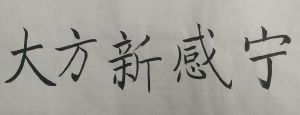 大方新感宁